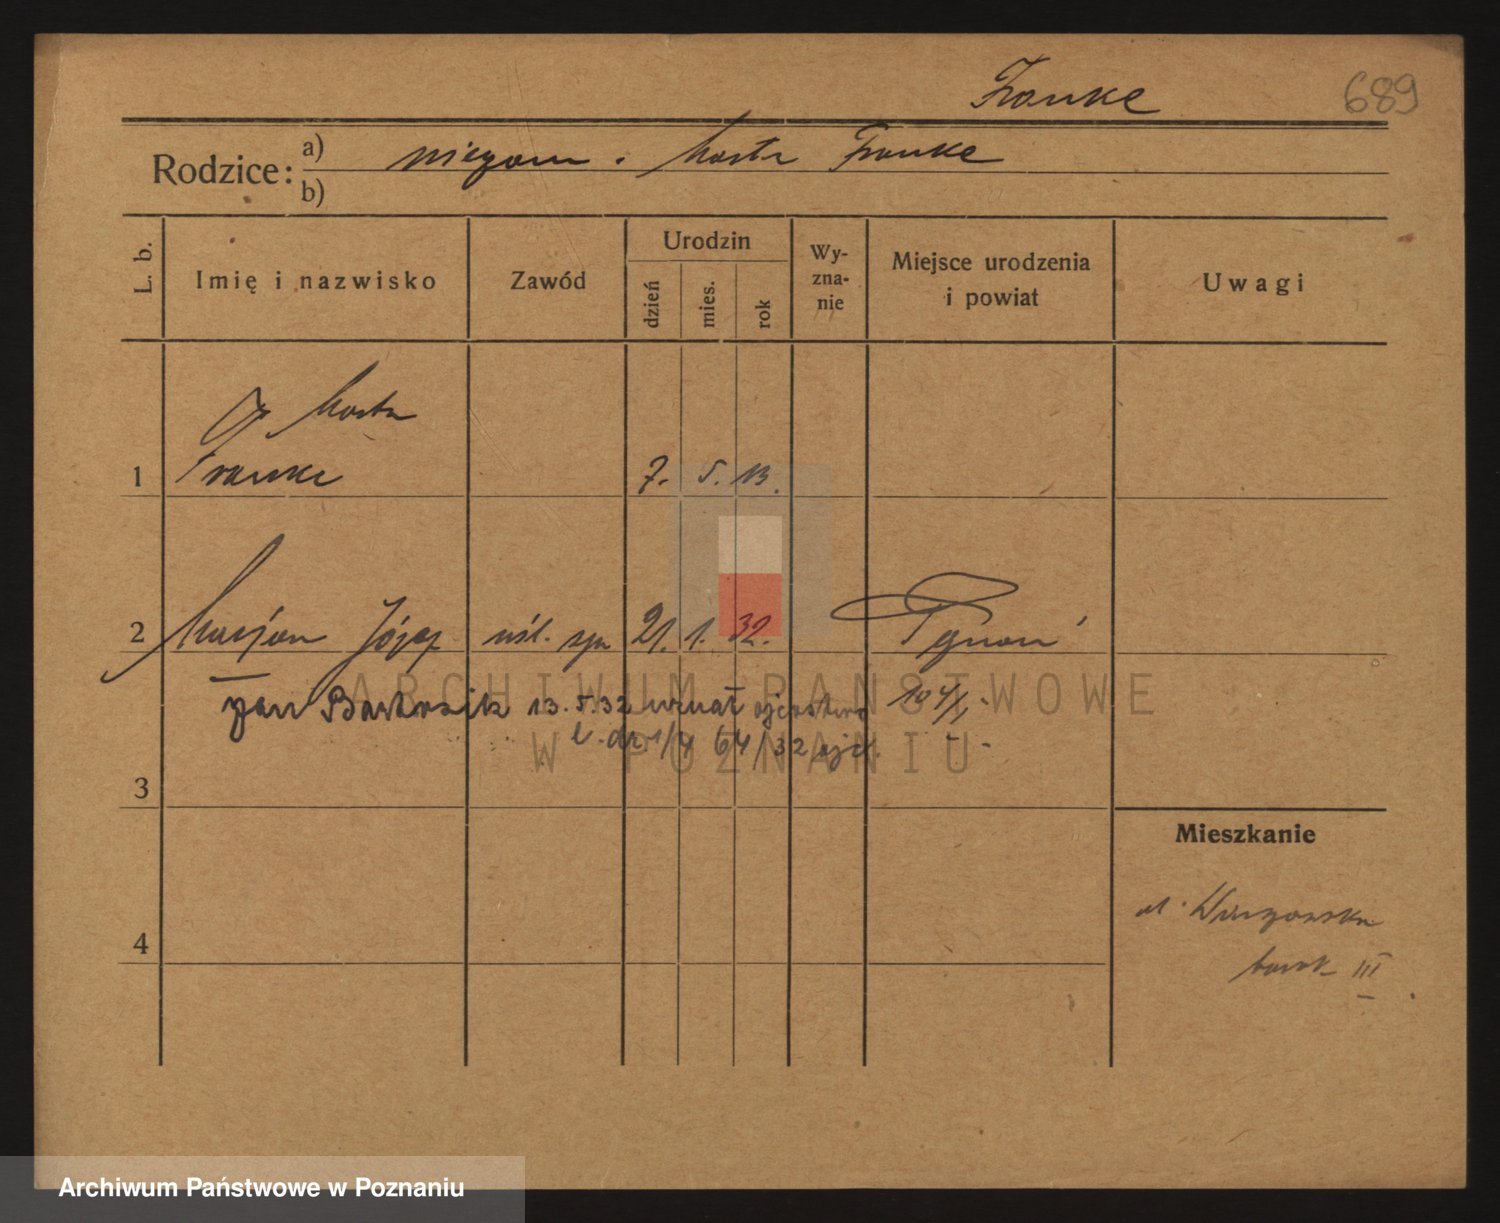 Franke
689
Rodzice: a) niezam. Marta Franke
b)
L. b.
Imię i nazwisko
Zawód
Urodzin
dzień
mies.
rok
Wy-
zna-
nie
Miejsce urodzenia
i powiat
Uwagi
Marta
1 Franke 7. 5. 13.
2 Marjan Józef 21. 1. 32.
Jan 13.5.32 uznał ojcostwo
64/32
3
Mieszkanie
4
barak III
ARCHIWUM PAŃSTWOWE
W POZNANIU
Archiwum Państwowe w Poznaniu